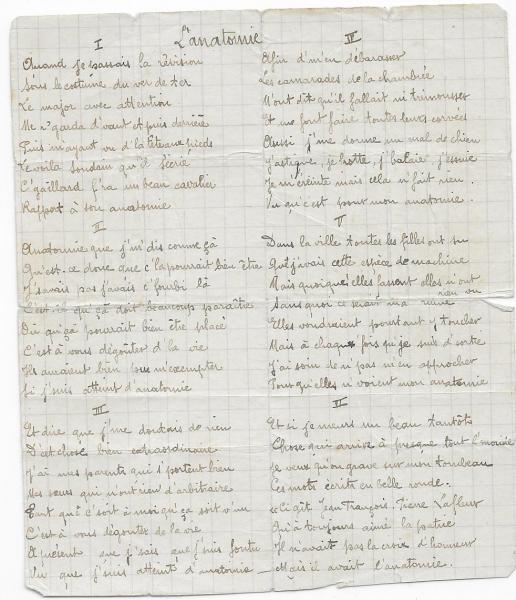 L'anatomie
I
Quand je passais la révision
Sous le costume du ver de ter
Le major avec attention
Me r'garda d'vant et puis derrière
Puis m'ayant vu d'la tête aux pieds
Le voila soudain qu'il s'écrie
C'gaillard f'ra un beau cavalier
Rapport à son anatomie
II
Anatomie que j'm'dis comme çà
Qu'est-ce donc que c'la pourrait bien être
J'savais pas j'avais c'fourbi là
C'est-il qu'ça doit beaucoup paraître
Où qu'çà pourrait bien être placé
C'est à vous dégoûter d'la vie
Ils auraient bien pu m'exempter
Si j'suis atteint d'anatomie
III
Et dire que j'me doutais de rien
D'cet chose bien extraordinaire
J'ai mes parents qui s'portent bien
Mes sœurs qui n'ont rien d'arbitraire
Faut qu'c'sort à moi qu'ça soit v'nu
C'est à vous dégoûter de la vie
A présent que j'sais que j'suis foutu
Vu que j'suis atteint d'anatomie
IV
Afin d'm'en débarasser
Les camarades de la chambrée
M'ont dit qu'il fallait m'trémousser
Et me font faire toutes leurs corvées
Aussi j'me donne un mal de chien
J'astique, je frotte, j'balaie j'essuie
Je m'éreinte mais cela n'fait rien.
Vu qu'c'est pour mon anatomie.
V
Dans la ville toutes les filles ont su
Qu'j'avais cette espèce de machine
Mais quoiqu'elles fassent elles n'ont rien vu
Sans quoi ce serait ma ruine
Elles voudraient pourtant y toucher
Mais à chaque fois qu'je suis d'sortie
J'ai soin de n'pas m'en approcher
Pour qu'elles n'voient mon anatomie
VI
Et si je meurs un beau tantôt
Chose qui arrive à presque tout l'monde
Je veux qu'on grave sur mon tombeau
Ces mots écrits en belle ronde.
Ci gît Jean François-Pierre Lafleur
Qu'à toujours aimé la patrie
Il n'avait pas la croix d'honneur
Mais il avait l'anatomie.